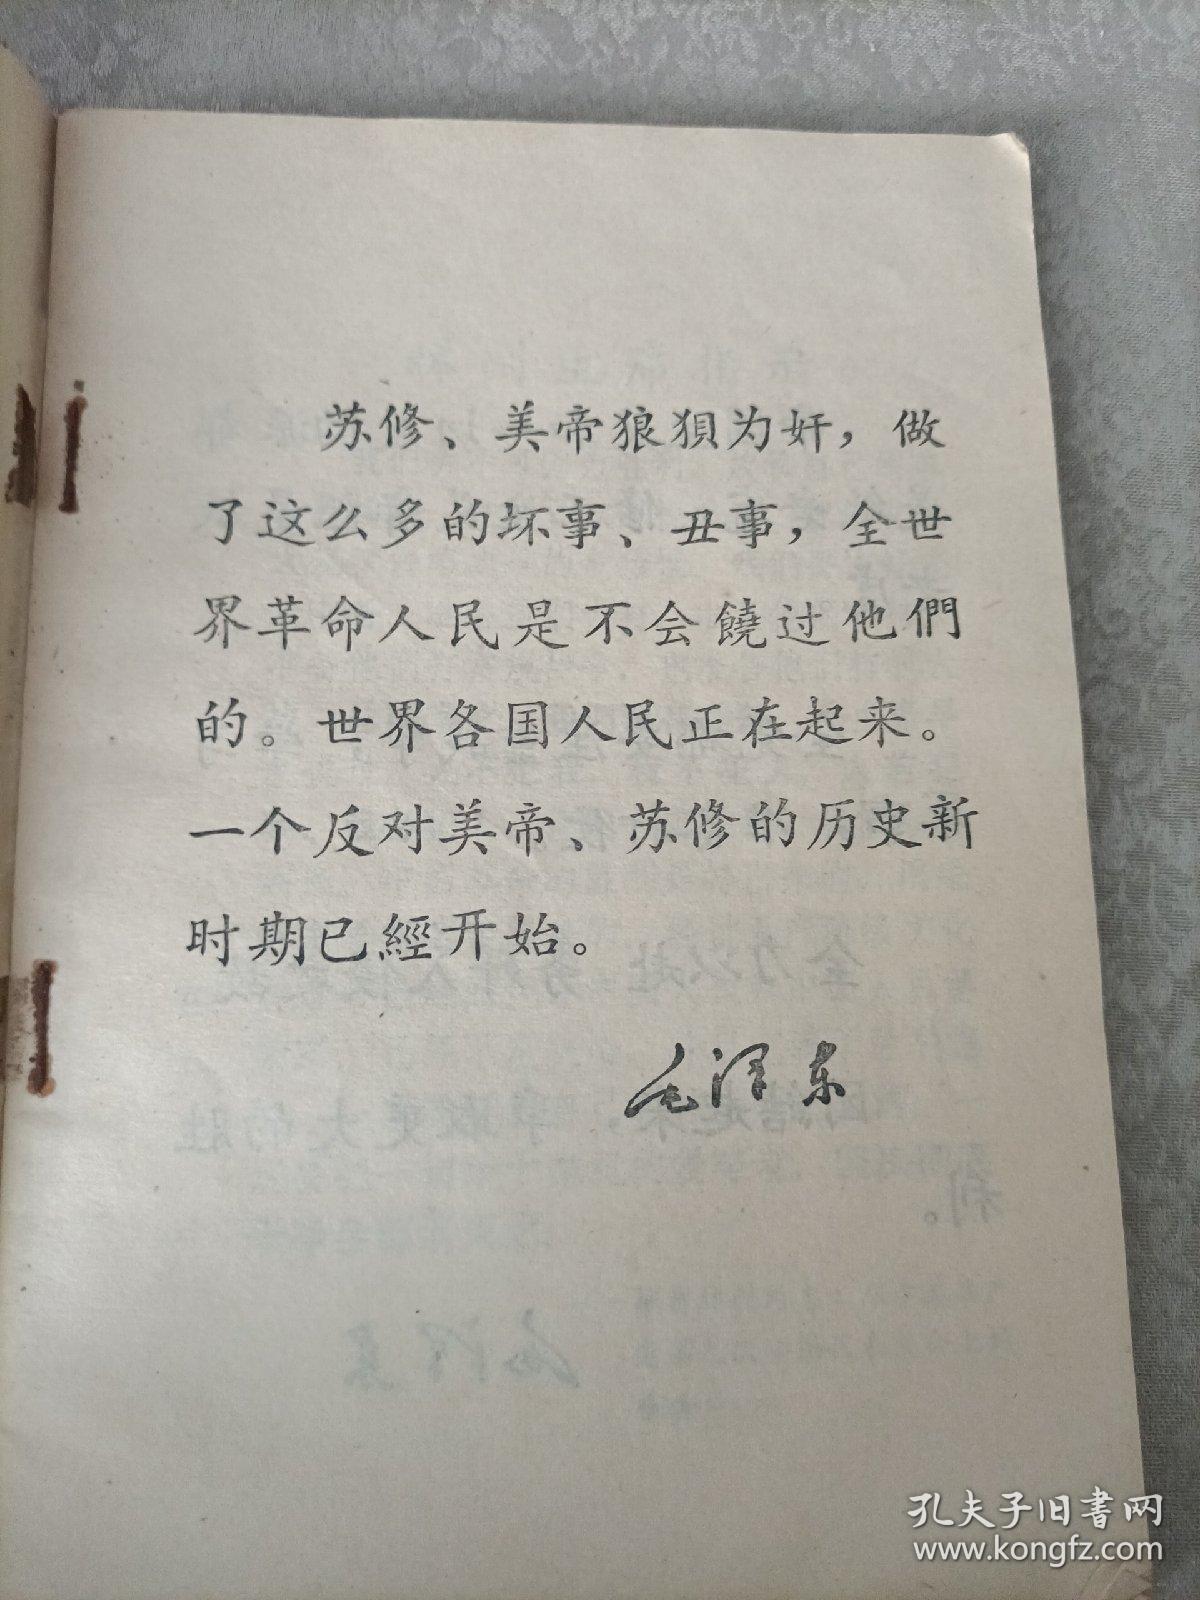 苏修、美帝狼狽为奸，做
了这么多的坏事、丑事，全世
界革命人民是不会饒过他們
的。世界各国人民正在起来。
一个反对美帝、苏修的历史新
时期已經开始。
毛泽东
孔夫子旧书网
www.kongfz.com